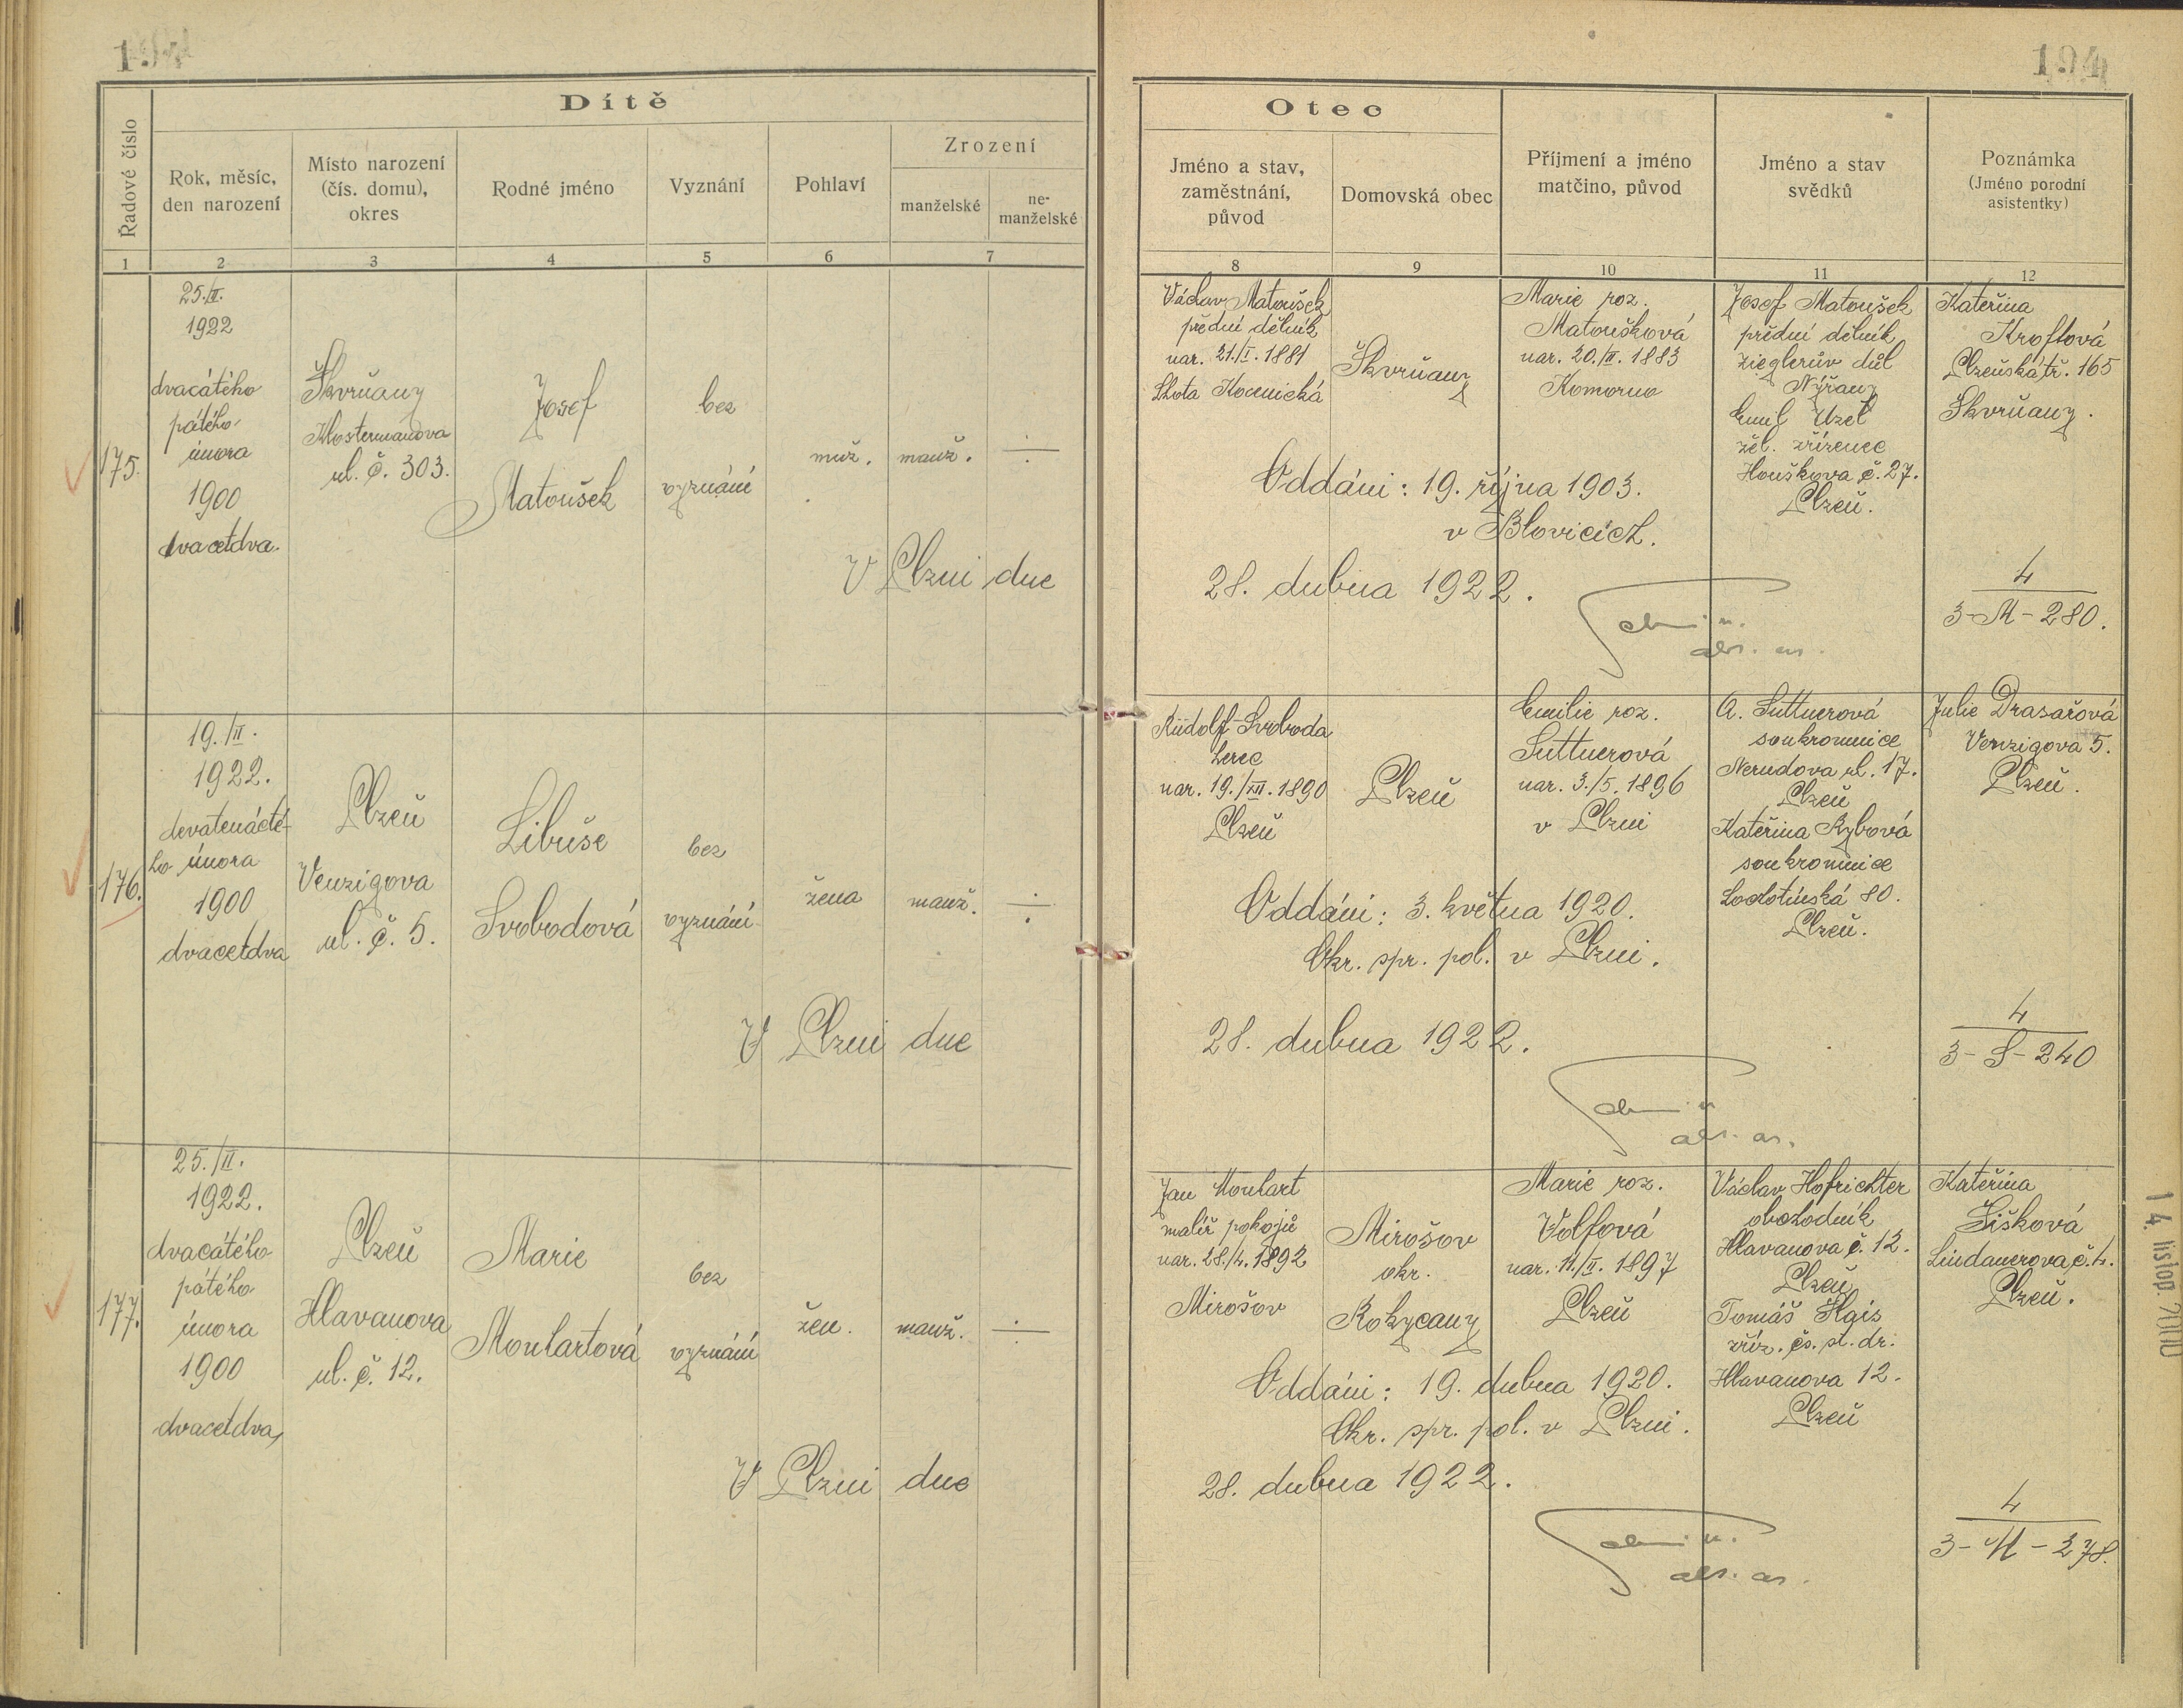 194
194
Dítě
Řadové číslo
Rok, měsíc,
den narození
Místo narození
(čís. domu),
okres
Rodné jméno
Vyznání
Pohlaví
Zrození
manželské
ne-
manželské
Otec
Jméno a stav,
zaměstnání,
původ
Domovská obec
Příjmení a jméno
matčino, původ
Jméno a stav
svědků
Poznámka
(Jméno porodní
asistentky)
1 2 3 4 5 6 7
8 9 10 11 12
175.
25./II.
1922
dvacátého
pátého
února
1900
dvacetdva.
Škvrňany
Klostermanova
ul. č. 303.
Josef
Matoušek
bez
vyznání
muž.
manž.
÷
Václav Matoušek
přední dělník
nar. 21./I. 1881
Lhota Kocenická
Škvrňany
Marie roz.
Matoušková
nar. 20./II. 1883
Komorno
Josef Matoušek
přední dělník
Zieglerův důl
Nýřany
Emil Uzel
žel. zřízenec
Houškova č. 27.
Plzeň.
Kateřina
Kroftová
Plzeňská tř. 165
Škvrňany.
Oddáni: 19. října 1903.
v Blovicích.
V Plzni dne
28. dubna 1922.
4
3-M-280.
176.
19./II.
1922.
devatenácté-
ho února
1900
dvacetdva
Plzeň
Venzigova
ul. č. 5.
Libuše
Svobodová
bez
vyznání
žena
manž.
÷
Rudolf Svoboda
herec
nar. 19./XII. 1890
Plzeň
Plzeň
Emilie roz.
Suttnerová
nar. 3./5. 1896
v Plzni
A. Suttnerová
soukromnice
Nerudova ul. 17.
Plzeň
Kateřina Rybová
soukromnice
Lochotínská 80.
Plzeň.
Julie Drasařová
Venzigova 5.
Plzeň.
Oddáni: 3. května 1920.
Okr. spr. pol. v Plzni.
V Plzni dne
28. dubna 1922.
4
3-S-240
177.
25./II.
1922.
dvacátého
pátého
února
1900
dvacetdva,
Plzeň
Hlavanova
ul. č. 12.
Marie
Moulartová
bez
vyznání
žen.
manž.
÷
Jan Moulart
malíř pokojů
nar. 28./4. 1892
Mirošov
Mirošov
okr.
Rokycany
Marie roz.
Volfová
nar. 11./II. 1897
Plzeň
Václav Hofrichter
obchodník
Hlavanova č. 12.
Plzeň
Tomáš Hais
zříz. čs. st. dr.
Hlavanova 12.
Plzeň
Kateřina
Šišková
Lindauerova č. 4.
Plzeň.
Oddáni: 19. dubna 1920.
Okr. spr. pol. v Plzni.
V Plzni dne
28. dubna 1922.
4
3-M-278.
14. listop. 2000